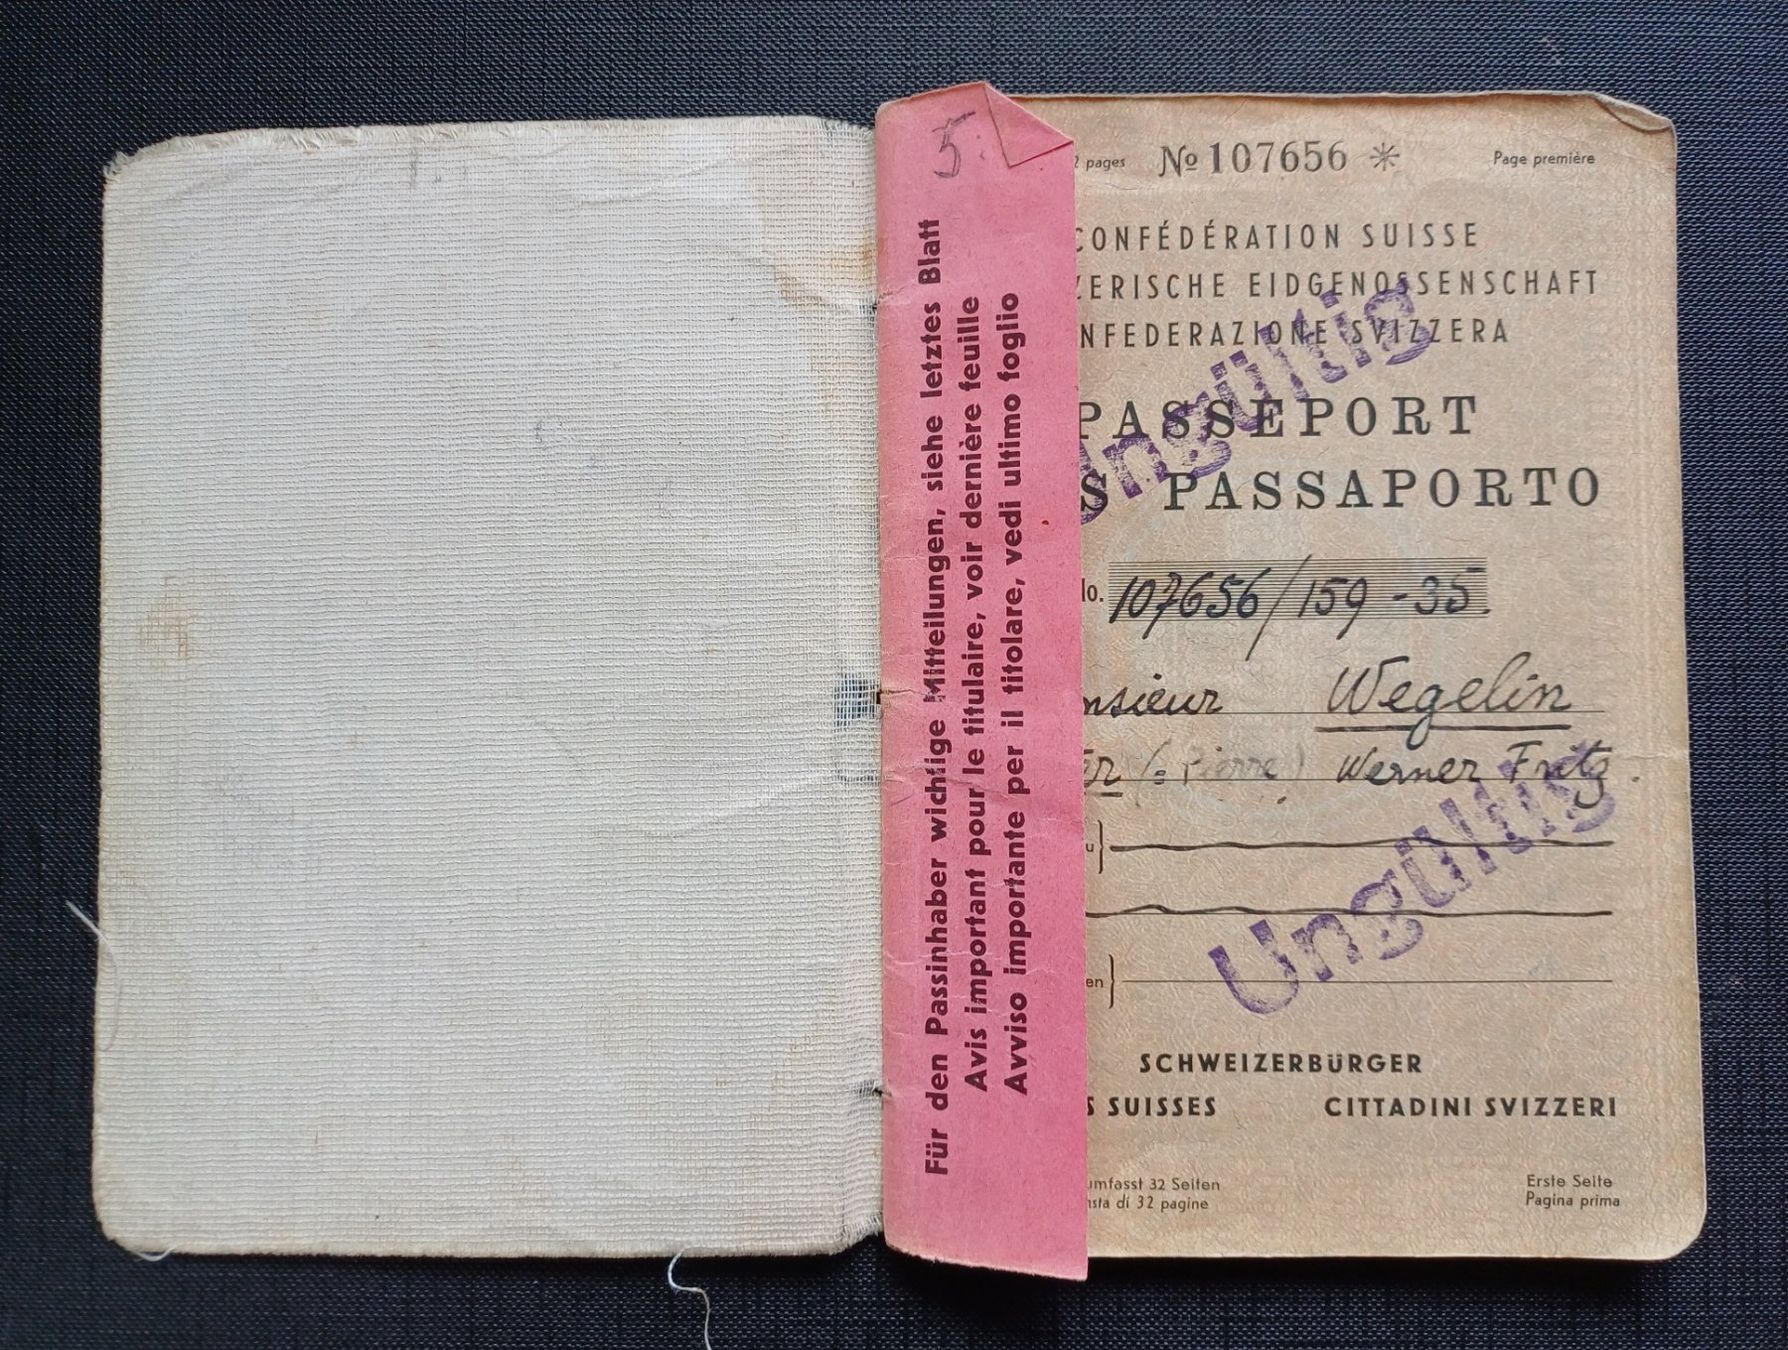 5.
Für den Passinhaber wichtige Mitteilungen, siehe letztes Blatt
Avis important pour le titulaire, voir dernière feuille
Avviso importante per il titolare, vedi ultimo foglio
pages № 107656 ✳ Page première
CONFÉDÉRATION SUISSE
ZERISCHE EIDGENOSSENSCHAFT
NFEDERAZIONE SVIZZERA
PASSEPORT
S PASSAPORTO
Ungültig
No. 107656/159-35.
nsieur Wegelin
er (= Pierre) Werner Fritz.
u}
en}
Ungültig
SCHWEIZERBÜRGER
S SUISSES CITTADINI SVIZZERI
umfasst 32 Seiten Erste Seite
nsta di 32 pagine Pagina prima